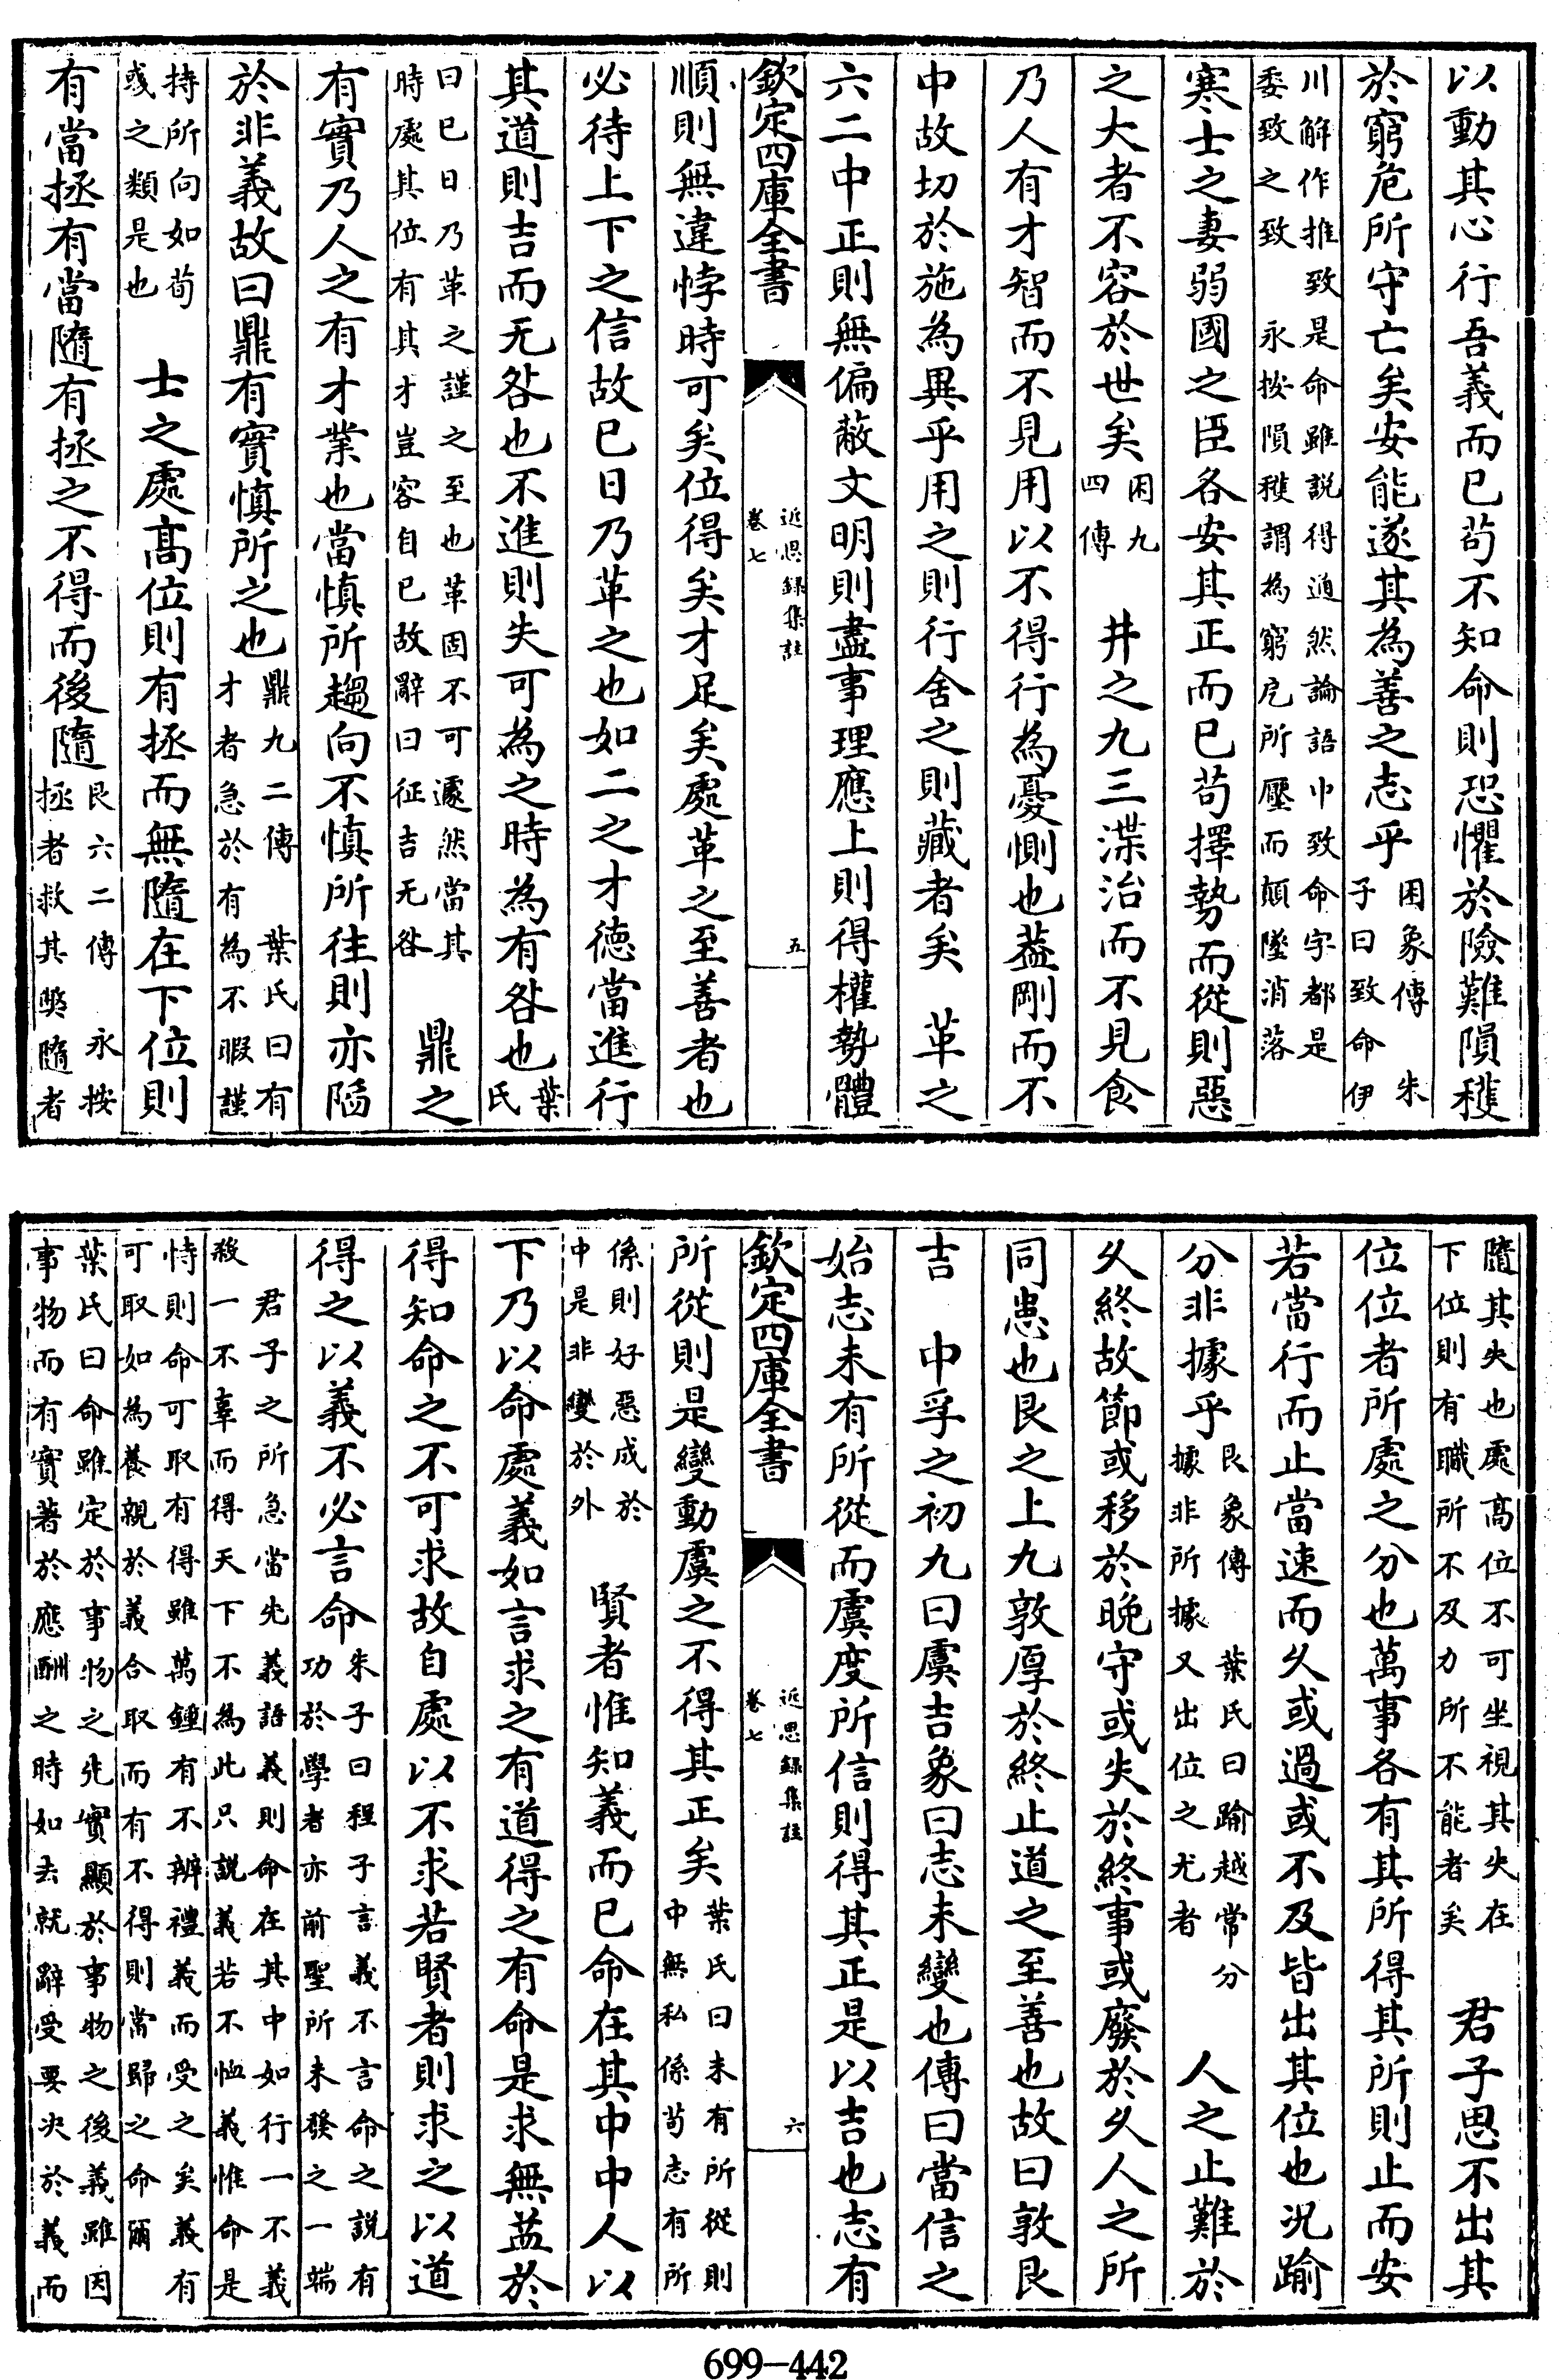 以動其心行吾義而已苟不知命則恐懼於險難隕穫
於窮危所守亡矣安能遂其為善之志乎困象傳 朱
子曰致命伊
川解作推致是命雖說得通然論語中致命字都是
委致之致 永按隕穫謂為窮戹所壓而顛墜消落
寒士之妻弱國之臣各安其正而已苟擇勢而從則惡
之大者不容於世矣困九
四傳 井之九三渫治而不見食
乃人有才智而不見用以不得行為憂惻也葢剛而不
中故切於施為異乎用之則行舍之則藏者矣 革之
六二中正則無偏蔽文明則盡事理應上則得權勢體
欽定四庫全書 近思錄集註
卷七 五
順則無違悖時可矣位得矣才足矣處革之至善者也
必待上下之信故已日乃革之也如二之才德當進行
其道則吉而无咎也不進則失可為之時為有咎也葉
氏
曰已日乃革之謹之至也革固不可遽然當其
時處其位有其才豈容自已故辭曰征吉无咎 鼎之
有實乃人之有才業也當慎所趨向不慎所往則亦陷
於非義故曰鼎有實慎所之也鼎九二傳 葉氏曰有
才者急於有為不暇謹
持所向如荀
彧之類是也 士之處高位則有拯而無隨在下位則
有當拯有當隨有拯之不得而後隨艮六二傳 永按
拯者救其獘隨者
隨其失也處高位不可坐視其失在
下位則有職所不及力所不能者矣 君子思不出其
位位者所處之分也萬事各有其所得其所則止而安
若當行而止當速而乆或過或不及皆出其位也況踰
分非據乎艮象傳 葉氏曰踰越常分
據非所據又出位之尤者 人之止難於
乆終故節或移於晚守或失於終事或廢於乆人之所
同患也艮之上九敦厚於終止道之至善也故曰敦艮
吉 中孚之初九曰虞吉象曰志未變也傳曰當信之
始志未有所從而虞度所信則得其正是以吉也志有
欽定四庫全書 近思錄集註
卷七 六
所從則是變動虞之不得其正矣葉氏曰未有所從則
中無私係苟志有所
係則好惡成於
中是非變於外 賢者惟知義而已命在其中中人以
下乃以命處義如言求之有道得之有命是求無益於
得知命之不可求故自處以不求若賢者則求之以道
得之以義不必言命朱子曰程子言義不言命之說有
功於學者亦前聖所未發之一端
君子之所急當先義語義則命在其中如行一不義
殺一不辜而得天下不為此只說義若不恤義惟命是
恃則命可取有得雖萬鍾有不辨禮義而受之矣義有
可取如為養親於義合取而有不得則當歸之命爾
葉氏曰命雖定於事物之先實顯於事物之後義雖因
事物而有實著於應酬之時如去就辭受要決於義而
699-442